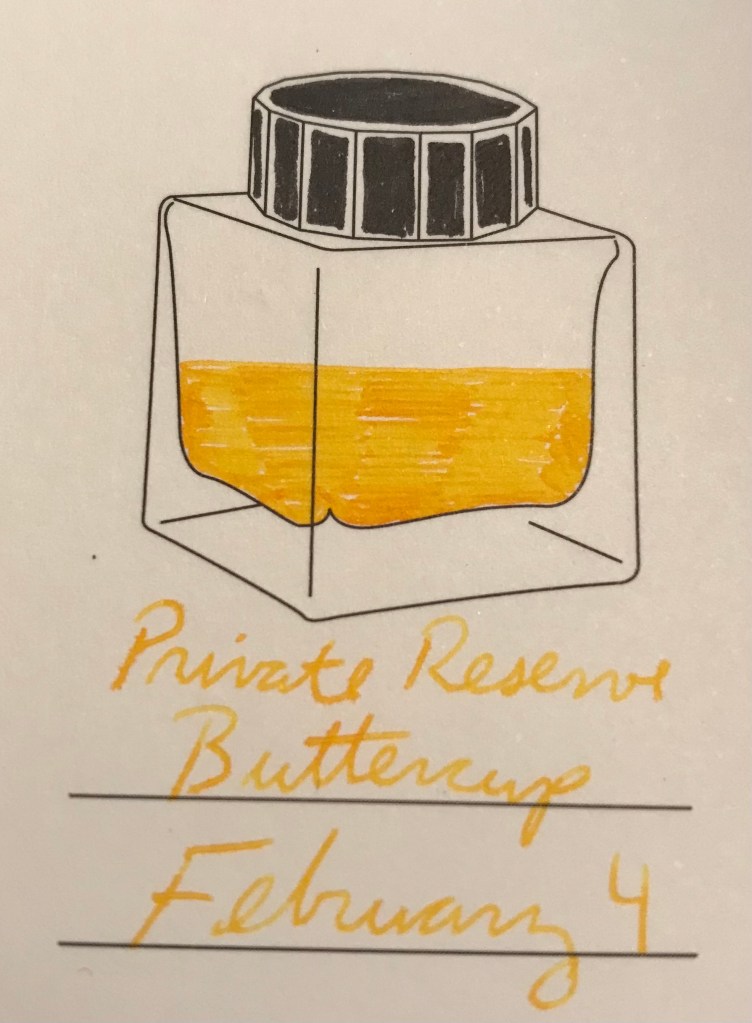 Private Reserve
Buttercup
February 4